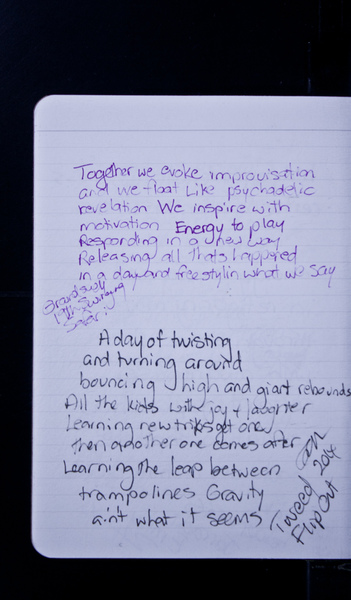 Together we evoke improvisation
and we float Like psychadelic
revelation We inspire with
motivation Energy to play
Responding in a new way
Releasing all thats happened
in a day and freestylin what we say
A day of twisting
and turning around
bouncing high and giant rebounds
All the kids with joy + laughter
Learning new triks get one
then another one comes after
Learning the leap between
trampolines Gravity
ain't what it seems
Tweed
Flip Out